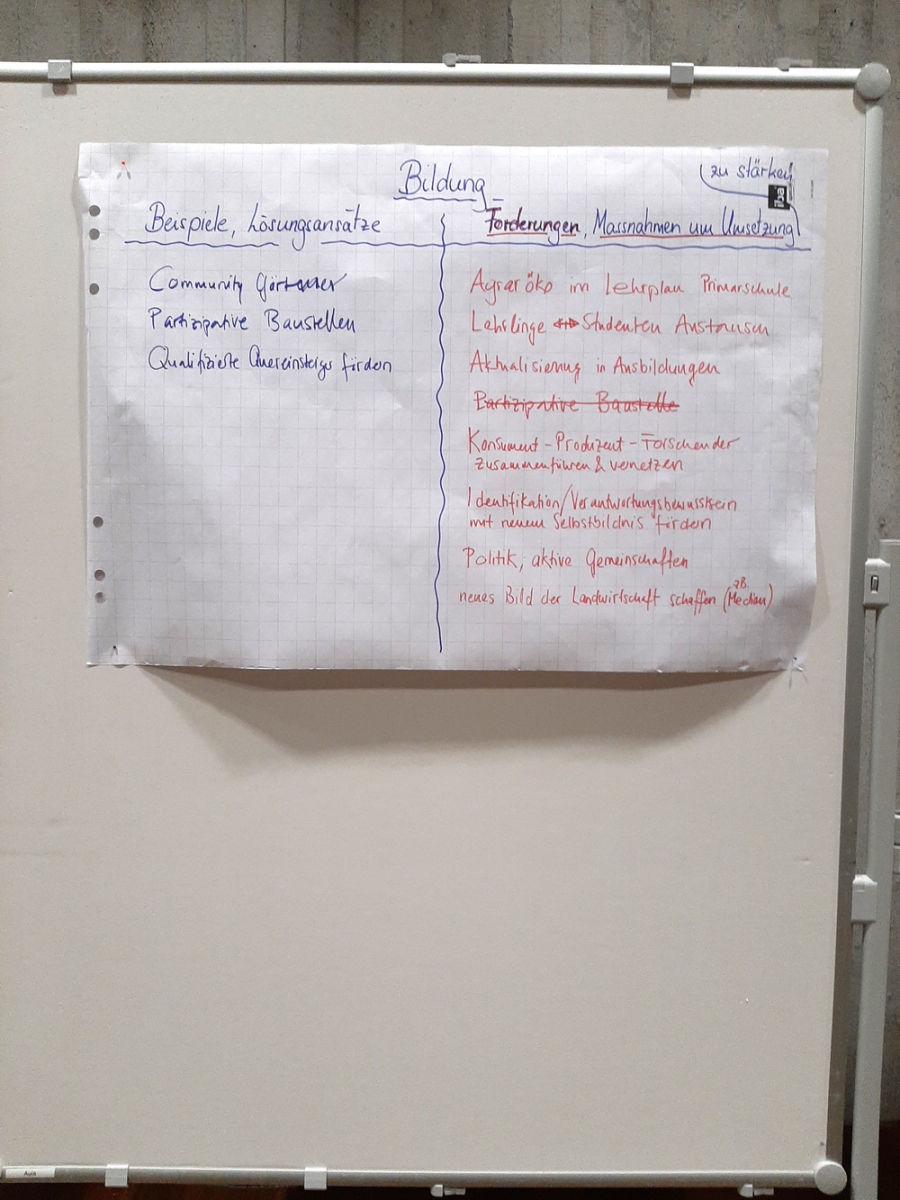 Bildung
zu stärken
Beispiele, Lösungsansätze
Forderungen, Massnahmen um Umsetzung
Community Gärtner
Partizipative Baustellen
Qualifizierte Quereinsteigs fördern
Agraröko im Lehrplan Primarschule
Lehrlinge ↔ Studenten Austausch
Aktualisierung in Ausbildungen
Partizipative Baustelle
Konsument - Produzent - Forschender
zusammenführen & vernetzen
Identifikation/Verantwortungsbewusstsein
mit neuem Selbstbildnis fördern
Politik, aktive Gemeinschaften
neues Bild der Landwirtschaft schaffen (z.B. Medien)
Aula